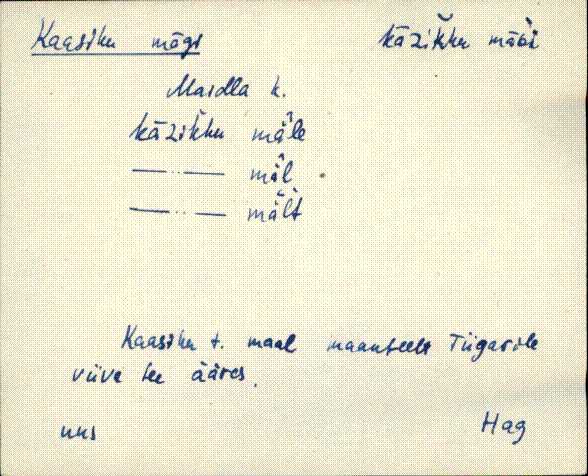 Kaasiku mägi kāzik̆ku mää̀i
Maidla k.
kāzik̆ku mä̂le
—..— mä̂l
—..— mä̂lt
Kaasiku t. maal maanteelt Tiigarile
viiva tee ääres.
uus Hag